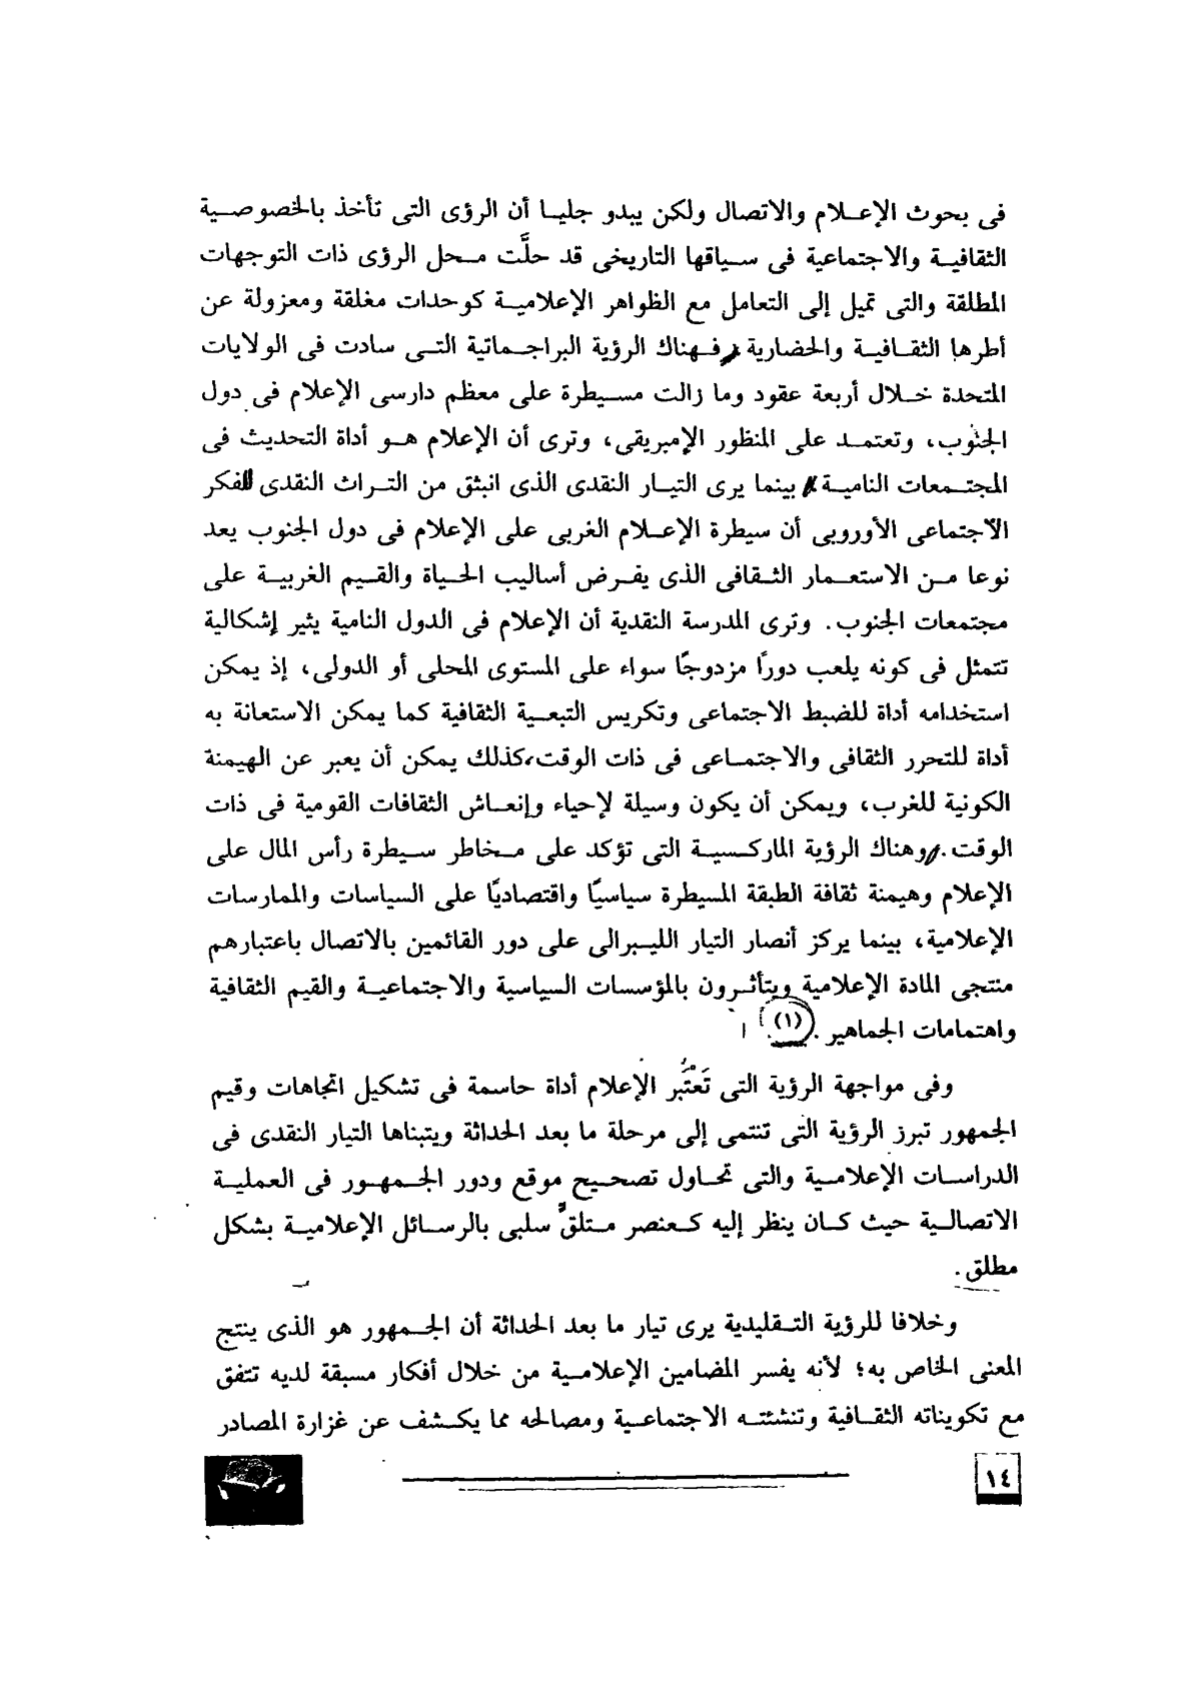 فى بحوث الإعلام والاتصال ولكن يبدو جليا أن الرؤى التى تأخذ بالخصوصية
الثقافية والاجتماعية فى سياقها التاريخى قد حلَّت محل الرؤى ذات التوجهات
المطلقة والتى تميل إلى التعامل مع الظواهر الإعلامية كوحدات مغلقة ومعزولة عن
أطرها الثقافية والحضارية فهناك الرؤية البراجماتية التى سادت فى الولايات
المتحدة خلال أربعة عقود وما زالت مسيطرة على معظم دارسى الإعلام فى دول
الجنوب، وتعتمد على المنظور الإمبريقى، وترى أن الإعلام هو أداة التحديث فى
المجتمعات النامية بينما يرى التيار النقدى الذى انبثق من التراث النقدى للفكر
الاجتماعى الأوروبى أن سيطرة الإعلام الغربى على الإعلام فى دول الجنوب يعد
نوعا من الاستعمار الثقافى الذى يفرض أساليب الحياة والقيم الغربية على
مجتمعات الجنوب. وترى المدرسة النقدية أن الإعلام فى الدول النامية يثير إشكالية
تتمثل فى كونه يلعب دورًا مزدوجًا سواء على المستوى المحلى أو الدولى، إذ يمكن
استخدامه أداة للضبط الاجتماعى وتكريس التبعية الثقافية كما يمكن الاستعانة به
أداة للتحرر الثقافى والاجتماعى فى ذات الوقت، كذلك يمكن أن يعبر عن الهيمنة
الكونية للغرب، ويمكن أن يكون وسيلة لإحياء وإنعاش الثقافات القومية فى ذات
الوقت. وهناك الرؤية الماركسية التى تؤكد على مخاطر سيطرة رأس المال على
الإعلام وهيمنة ثقافة الطبقة المسيطرة سياسيًا واقتصاديًا على السياسات والممارسات
الإعلامية، بينما يركز أنصار التيار الليبرالى على دور القائمين بالاتصال باعتبارهم
منتجى المادة الإعلامية ويتأثرون بالمؤسسات السياسية والاجتماعية والقيم الثقافية
واهتمامات الجماهير. (١)
وفى مواجهة الرؤية التى تَعتَبر الإعلام أداة حاسمة فى تشكيل اتجاهات وقيم
الجمهور تبرز الرؤية التى تنتمى إلى مرحلة ما بعد الحداثة ويتبناها التيار النقدى فى
الدراسات الإعلامية والتى تحاول تصحيح موقع ودور الجمهور فى العملية
الاتصالية حيث كان ينظر إليه كعنصر متلقٍّ سلبى بالرسائل الإعلامية بشكل
مطلق.
وخلافا للرؤية التقليدية يرى تيار ما بعد الحداثة أن الجمهور هو الذى ينتج
المعنى الخاص به؛ لأنه يفسر المضامين الإعلامية من خلال أفكار مسبقة لديه تتفق
مع تكويناته الثقافية وتنشئته الاجتماعية ومصالحه مما يكشف عن غزارة المصادر
١٤